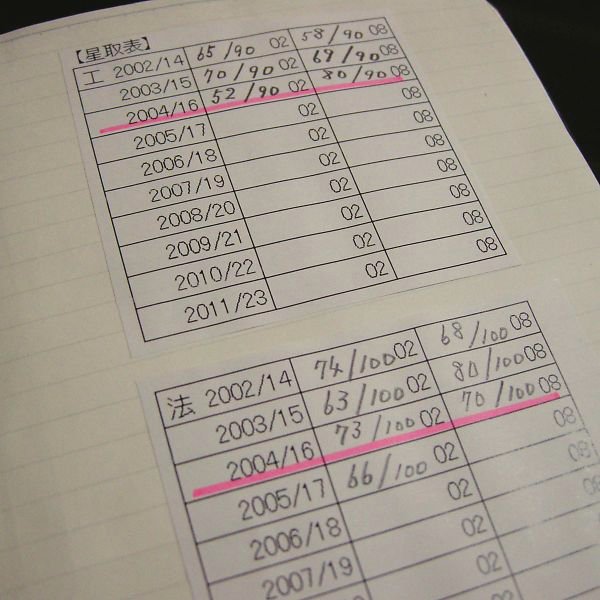 【星取表】
工 2002/14 65/90 02 58/90 08
2003/15 70/90 02 69/90 08
2004/16 52/90 02 80/90 08
2005/17 02 08
2006/18 02 08
2007/19 02 08
2008/20 02 08
2009/21 02 08
2010/22 02 08
2011/23 02 08
法 2002/14 74/100 02 68/100 08
2003/15 63/100 02 80/100 08
2004/16 73/100 02 70/100 08
2005/17 66/100 02 08
2006/18 02 08
2007/19 02